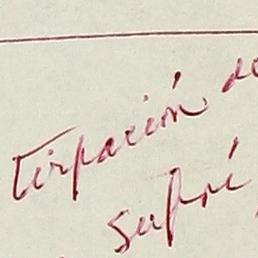 tirpación de
sufrí